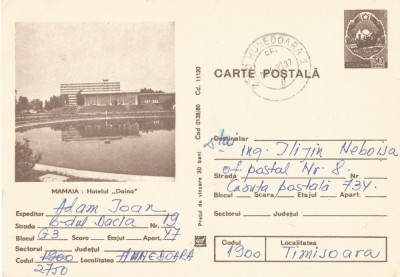 MAMAIA : Hotelul „Doina”
Expeditor Adam Ioan
Strada B-dul Dacia Nr. 19
Bloc G3 Scara Etajul Apart. 47
Sectorul Județul
Codul 1900 Localitatea HUNEDOARA
2750
Prețul de vînzare 30 bani
Cod 0138/80
Cd. 11130
HUNEDOARA
CARTE POSTALĂ
Destinatar Ing. Ilijin Neboisa
of. postal Nr. 8.
Strada Nr.
Casuța postală 734.
Blocul Scara Etajul Apart.
Sectorul Județul
Codul Localitatea
1900 Timisoara